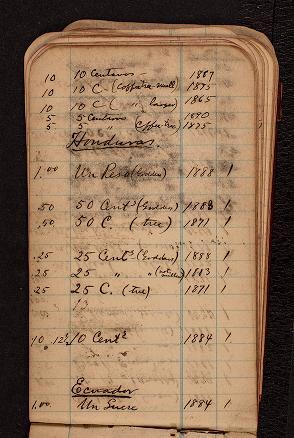 10 10 Centavos - 1887
10 10 C (Coffatre-small) 1875
10 10 C ( " larger) 1865
5 5 Centavos 1890
5 5 " (Coffatre) 1875
Honduras.
1.00 Un Peso (Goddess) 1888 1
.50 50 Cents (Goddess) 1888 1
.50 50 C. (tree) 1871 1
.25 25 Cents (Goddess) 1888 1
.25 25 " " 1883 1
.25 25 C. (tree) 1871 1
10 .12½ 10 Cents 1884 1
Ecuador
1.00 Un Sucre 1884 1